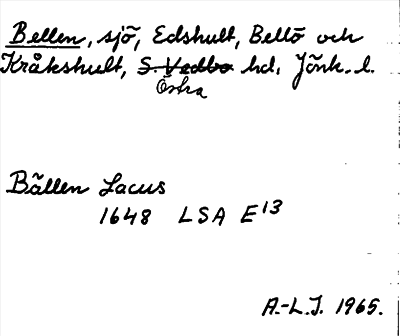 Bellen, sjö, Edshult, Bellö och
Kråkshult, S. Vedbo hd, Jönk. l.
Östra
Bällen Lacus
1648 LSA E13
A.-L.J. 1965.